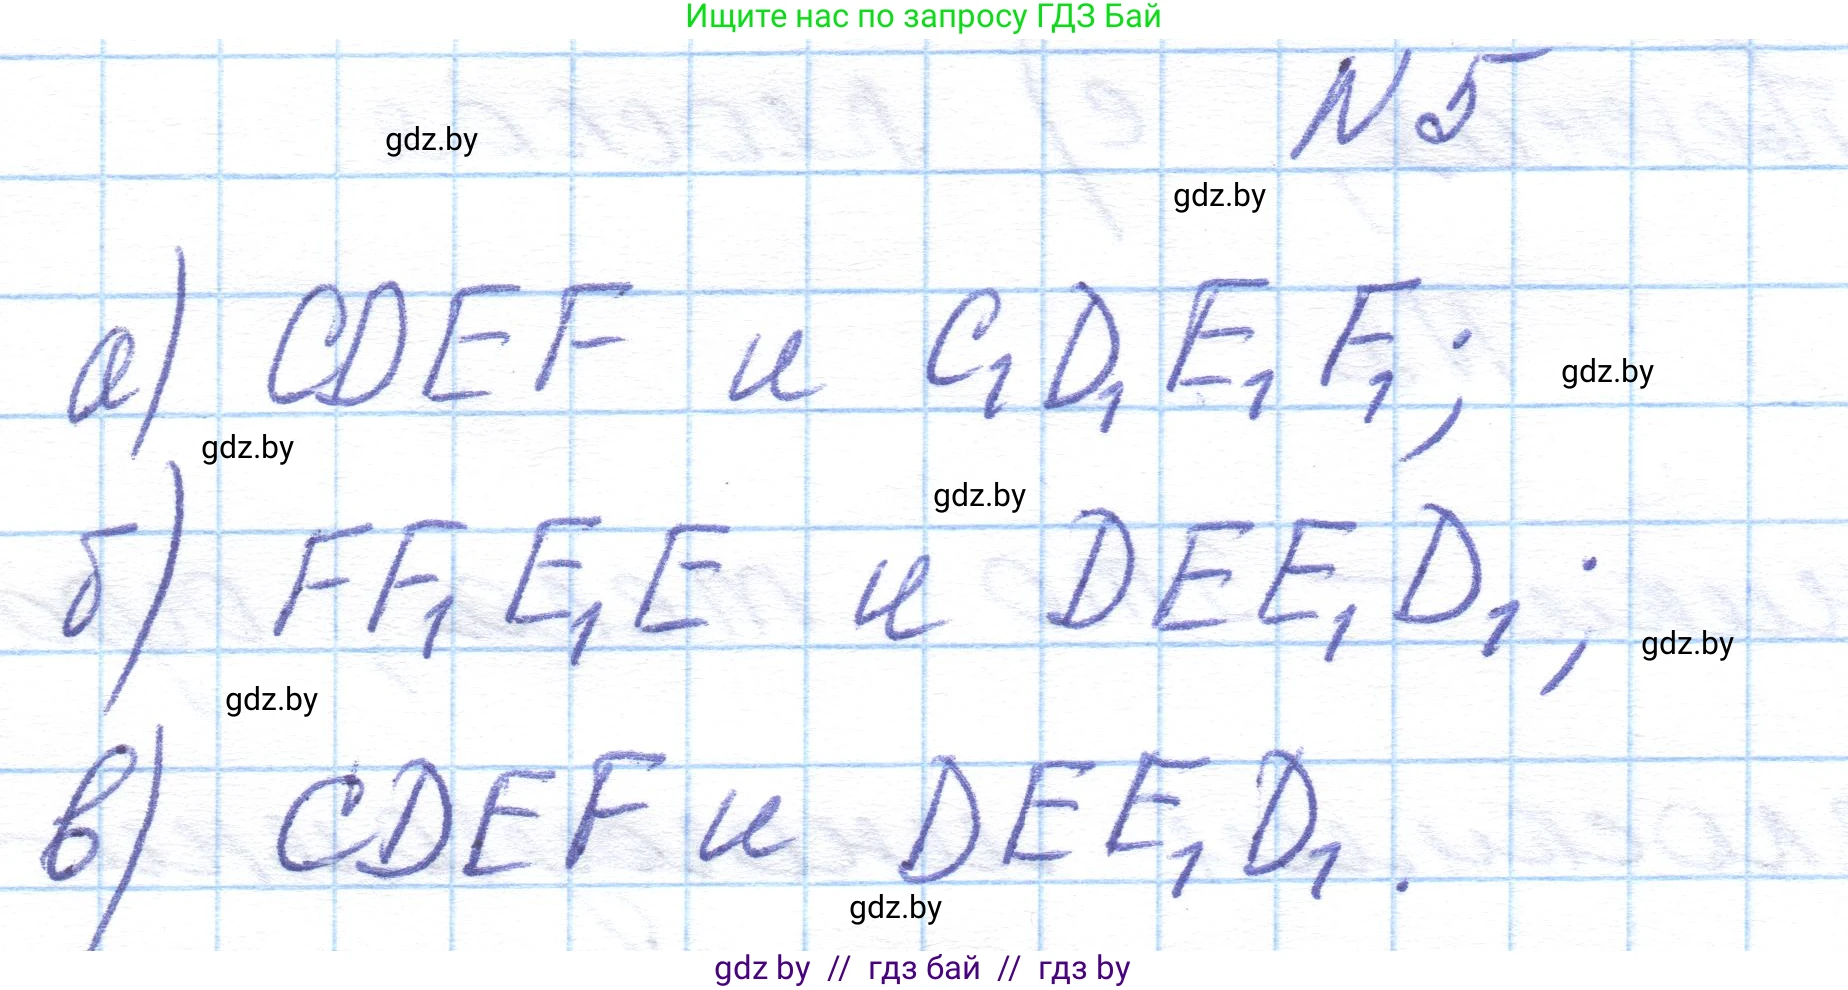 Ищите нас по запросу ГДЗ Бай
N 5
gdz.by
gdz.by
а) CDEF и C₁D₁E₁F₁;
gdz.by
gdz.by
gdz.by
б) FF₁E₁E и DEE₁D₁;
gdz.by
gdz.by
в) CDEF и DEE₁D₁.
gdz.by
gdz by // гдз бай // гдз by